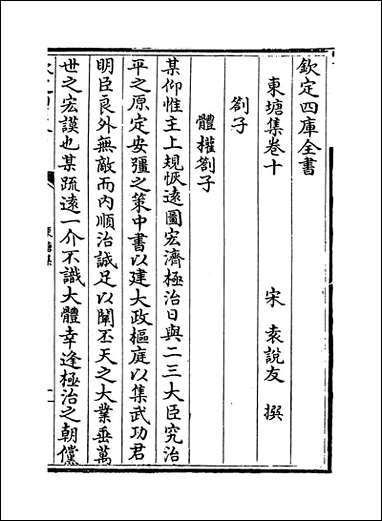 欽定四庫全書
東塘集卷十
宋 袁說友 撰
劄子
體權劄子
某仰惟主上規恢遠圖宏濟極治日與二三大臣究治
平之原定安彊之策中書以建大政樞庭以集武功君
明臣良外無敵而內順治誠足以闡丕天之大業垂萬
世之宏謨也某疏遠一介不識大體幸逢極治之朝儻
東塘集